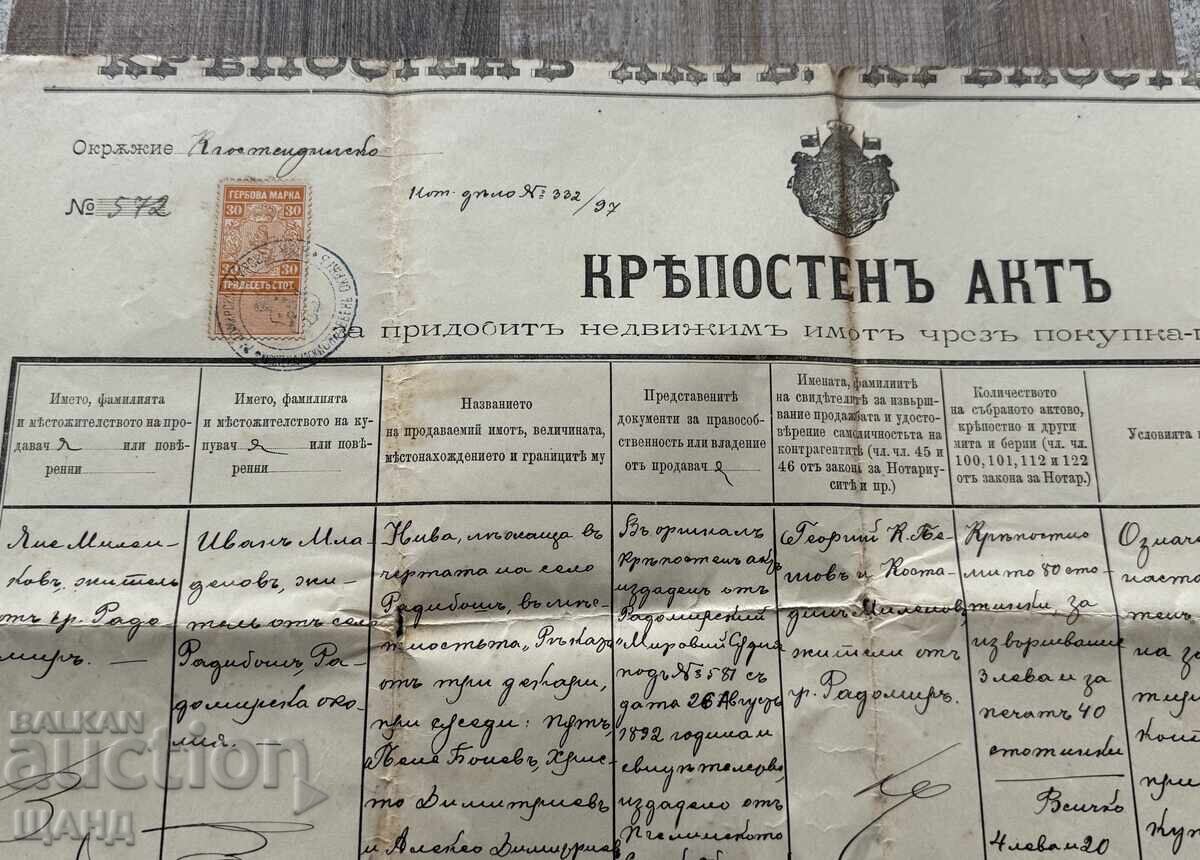 КРѢПОСТЕНЪ АКТЪ. КРѢПОСТ
Окрѫжие Кюстендилско
№ 572
Нот. дѣло № 332/97
ГЕРБОВА МАРКА
30 30
30 30
ТРИДЕСЕТЬ СТОТ.
КРѢПОСТЕНЪ АКТЪ
за придобитъ недвижимъ имотъ чрезъ покупка-п
Името, фамилията
и мѣстожителството на про-
давач а или повѣ-
ренни
Името, фамилията
и мѣстожителството на ку-
пувач а или повѣ-
ренни
Названието
на продаваемий имотъ, величината,
мѣстонахождението и границитѣ му
Представенитѣ
документи за правособ-
ственность или владение
отъ продавач а
Имената, фамилиитѣ
на свидѣтелитѣ за извър-
швание продажбата и удосто-
вѣрение самоличностьта на
контрагентитѣ (чл. чл. 45 и
46 отъ закона за Нотариу-
ситѣ и пр.)
Количеството
на събраното актово,
крѣпостно и други
мита и берии (чл. чл.
100, 101, 112 и 122
отъ закона за Нотар.)
Условията н
Яне Милен-
ковъ, жителъ
отъ гр. Радо
миръ. —
Иванъ Мла-
деновъ, жи-
тель отъ село
Радибошъ, Ра-
домирска око-
лия. —
Нива, лѣжаща въ
чертата на село
Радибошъ, въ мѣс-
тностьта „
отъ три декари,
при суседи: пѫтъ,
Пене Боневъ, Хрис-
то Димитриевъ
и Алексо Димитриев
Въ оригиналъ
крѣпостенъ актъ
издаденъ отъ
Радомирский
Мировий Судия
подъ № 581 съ
дата 26 Августъ
1892 година и
свидѣтелство
издадено отъ
Георгий К. Бе-
шовъ и Коста-
динъ Миленовъ,
жители отъ
гр. Радомиръ.
Крѣпостно
мито 80 сто-
тинки, за
извършвание
3 лева и за
печатъ 40
стотинки
Всичко
4 лева и 20
Означе
наста
тенъ
на за
тир
коит
при
куп
BALKAN
auction
ШАНД